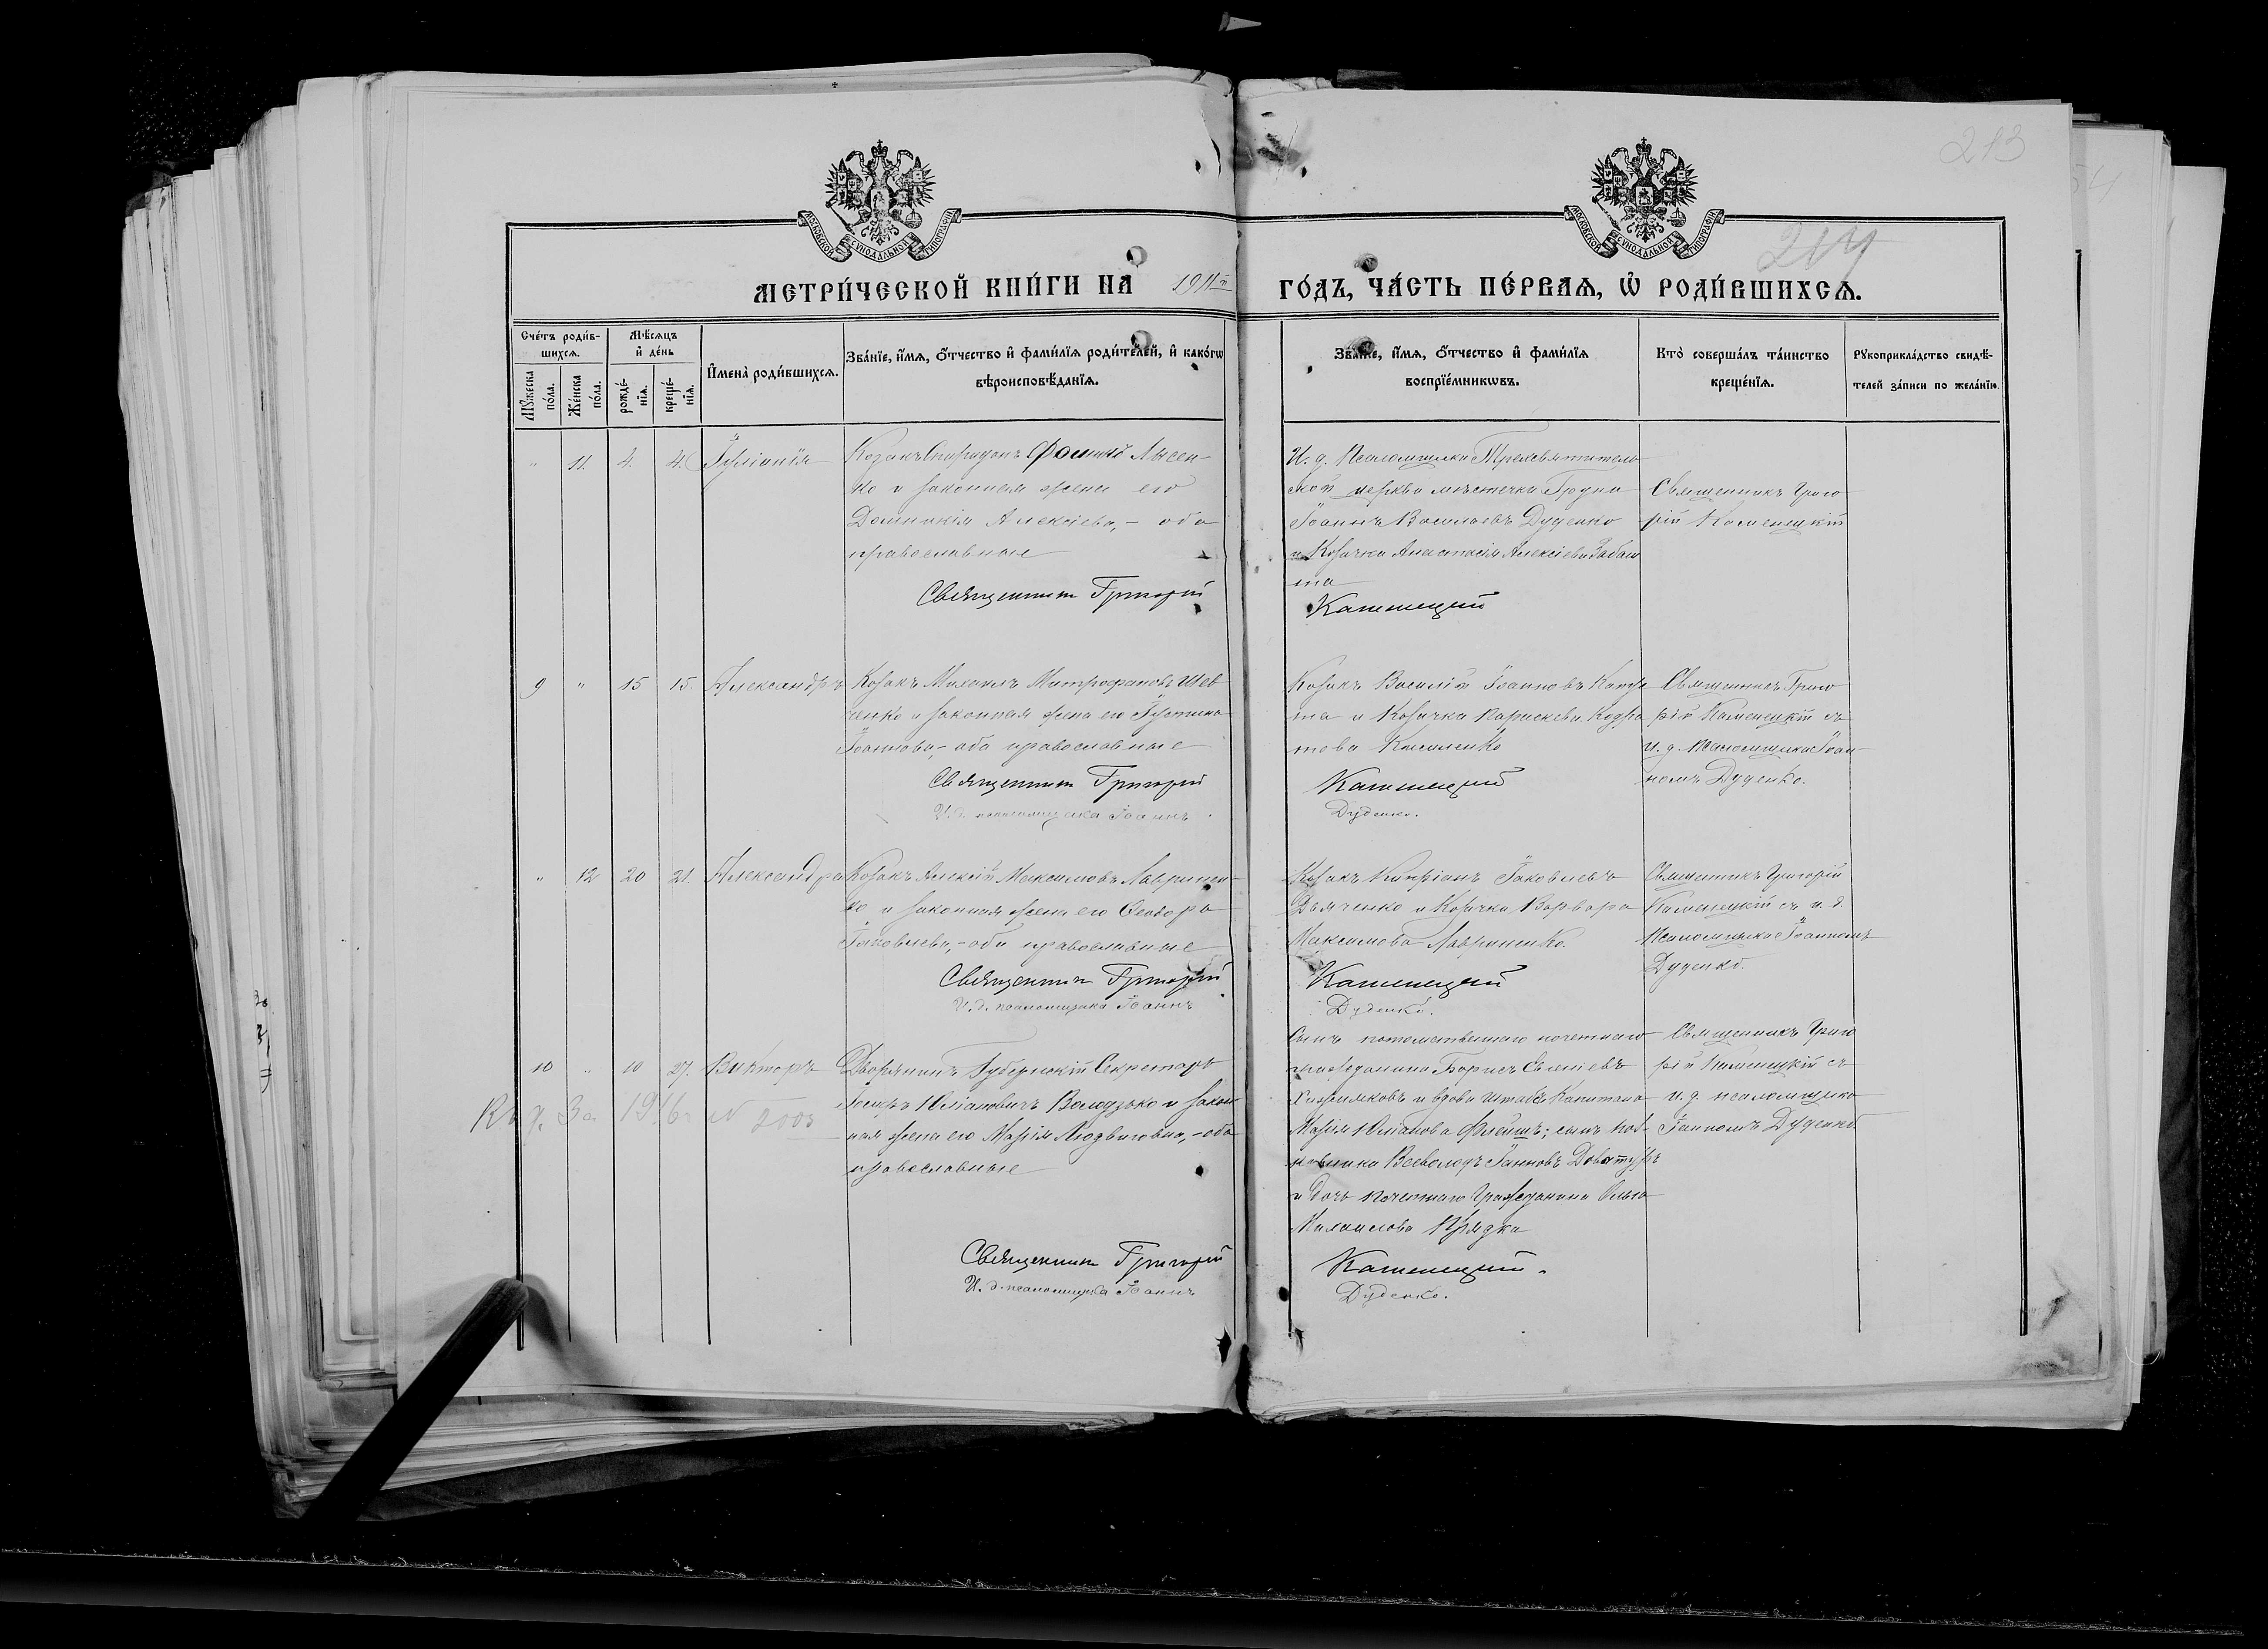 213
214
МОСКОВСКОЙ СѴНОДАЛЬНОЙ ТИПОГРАФІИ
МОСКОВСКОЙ СѴНОДАЛЬНОЙ ТИПОГРАФІИ
МЕТРИ́ЧЕСКОЙ КНИ́ГИ НА 1911й ГО́ДЪ, ЧА́СТЬ ПЕ́РВАЯ, Ѡ҆ РОДИ́ВШИХСЯ.
Сче́тъ роди́в-
шихся.
Мꙋ́жеска по́ла.
Же́нска по́ла.
Мѣ́сяцъ
и҆ де́нь
рожде́-
нїя.
креще́-
нїя.
И҆мена̀ роди́вшихся.
Зва́нїе, и҆́мя, ѻ҆́тчество и҆ фами́лїя роди́телей, и҆ како́гѡ
вѣроисповѣ́данїя.
Зва́нїе, и҆́мя, ѻ҆́тчество и҆ фами́лїя
воспрїе́мникѡвъ.
Кто̀ соверша́лъ та́инство
креще́нїя.
Рꙋкоприкла́дство свидѣ́-
телей за́писи по жела́нїю
" 11. 4. 4. Іуліанія
Козакъ Спиридонъ Фоминъ Лысен-
ко и законная жена его
Домникія Алексіева, – оба
православные
Священникъ Григорій
И. д. псаломщика Трехсвятитель-
ской церкви мѣстечка Груни
Іоаннъ Васильевъ Дуденко
и Козачка Анастасія Алексіева Забаш
та
Каменецкій
Священникъ Григо
рій Каменецкій
9 " 15 15. Александръ
Козакъ Михаилъ Митрофановъ Шев
ченко и законная жена его Іустина
Іоаннова, – оба православные
Священникъ Григорій
И. д. псаломщика Іоаннъ
Козакъ Василій Іоанновъ
та и Козачка Параскева Кодра
това
Каменецкій
Дуденко.
Священникъ Григо
рій Каменецкій съ
и. д. псаломщика Іоан-
номъ Дуденко.
" 12 20 21. Александра
Козакъ Алексій Максимовъ Лавринен-
ко и законная жена его Ѳеодора
Іаковлева, – оба православные
Священникъ Григорій
И. д. псаломщика Іоаннъ
Козакъ Кипріанъ Іаковлевъ
Дьяченко и Козачка Варвара
Максимова Лавриненко.
Каменецкій
Дуденко.
Священникъ Григорій
Каменецкій съ и. д.
псаломщика Іоанномъ
Дуденко.
10 " 10 27. Викторъ
За 1916 г. № 2003
Дворянинъ Губернскій Секретарь
Юліановичъ Володзько и закон
ная жена его Марія Людвиговна, – оба
православные
Священникъ Григорій
И. д. псаломщика Іоаннъ
Сынъ потомственнаго почетнаго
гражданина Борисъ
и вдова Штабсъ Капитана
Марія Юліанова Флейшъ; сынъ пол-
ковника Всеволодъ Іанновъ Доватуръ
и дочь почетнаго Гражданина Ольга
Михаилова Прядка
Каменецкій.
Дуденко.
Священникъ Григо
рій Каменецкій съ
и. д. псаломщика
Іоанномъ Дуденко